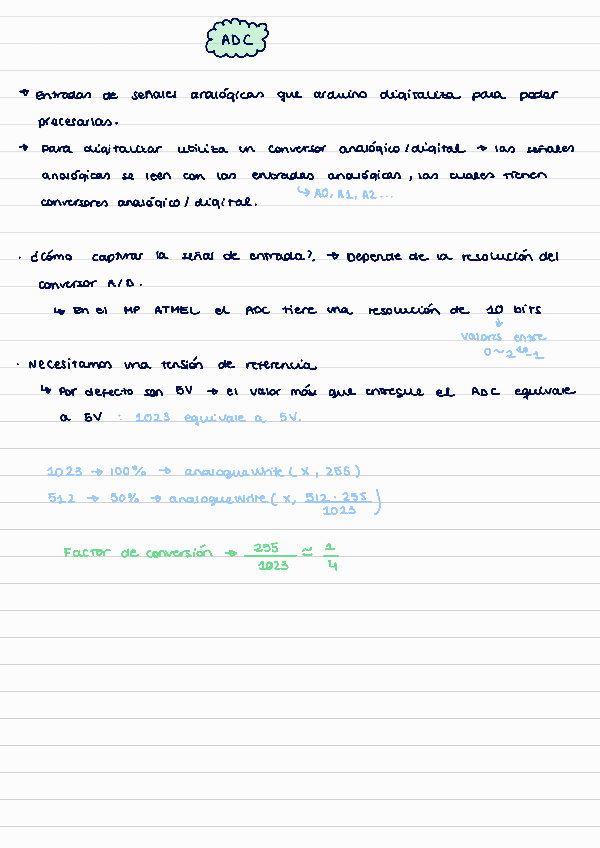 ADC
→ Entradas de señales analógicas que arduino digitaliza para poder
procesarlas.
→ Para digitalizar utiliza un conversor analógico/digital → las señales
analógicas se leen con las entradas analógicas, las cuales tienen
↳ A0, A1, A2...
conversores analógico/digital.
· ¿Cómo capturar la señal de entrada?. → Depende de la resolución del
conversor A/D.
↳ En el MP ATMEL el ADC tiene una resolución de 10 bits
↓
valores entre
0~2¹⁰-1
· Necesitamos una tensión de referencia
↳ Por defecto son 5V → el valor máx que entregue el ADC equivale
a 5V : 1023 equivale a 5V.
1023 → 100% → analogueWrite(x, 255)
512 → 50% → analogueWrite(x, 512·255/1023)
Factor de conversión → 255/1023 ≈ 1/4